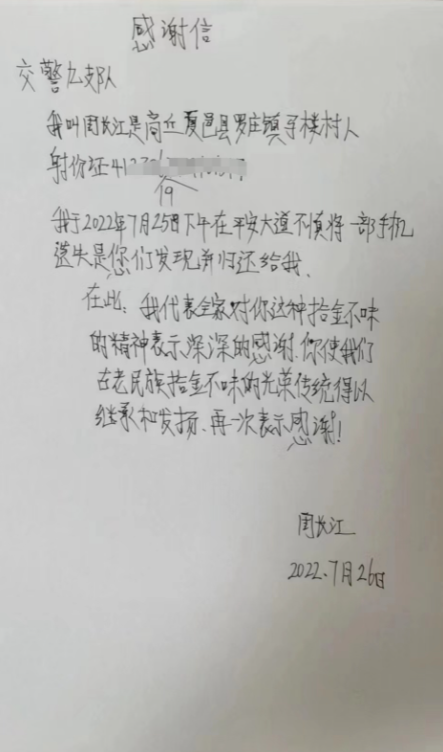 感谢信
交警九支队
我叫周长江是商丘夏邑县罗庄镇于楼村人
身份证412
19
我于2022年7月25日下午在平安大道不慎将一部手机
遗失是您们发现并归还给我.
在此：我代表全家对你这种拾金不昧
的精神表示深深的感谢.你使我们
在老民族拾金不味的光荣传统得以
继承和发扬、再一次表示感谢！
周长江
2022.7月26日